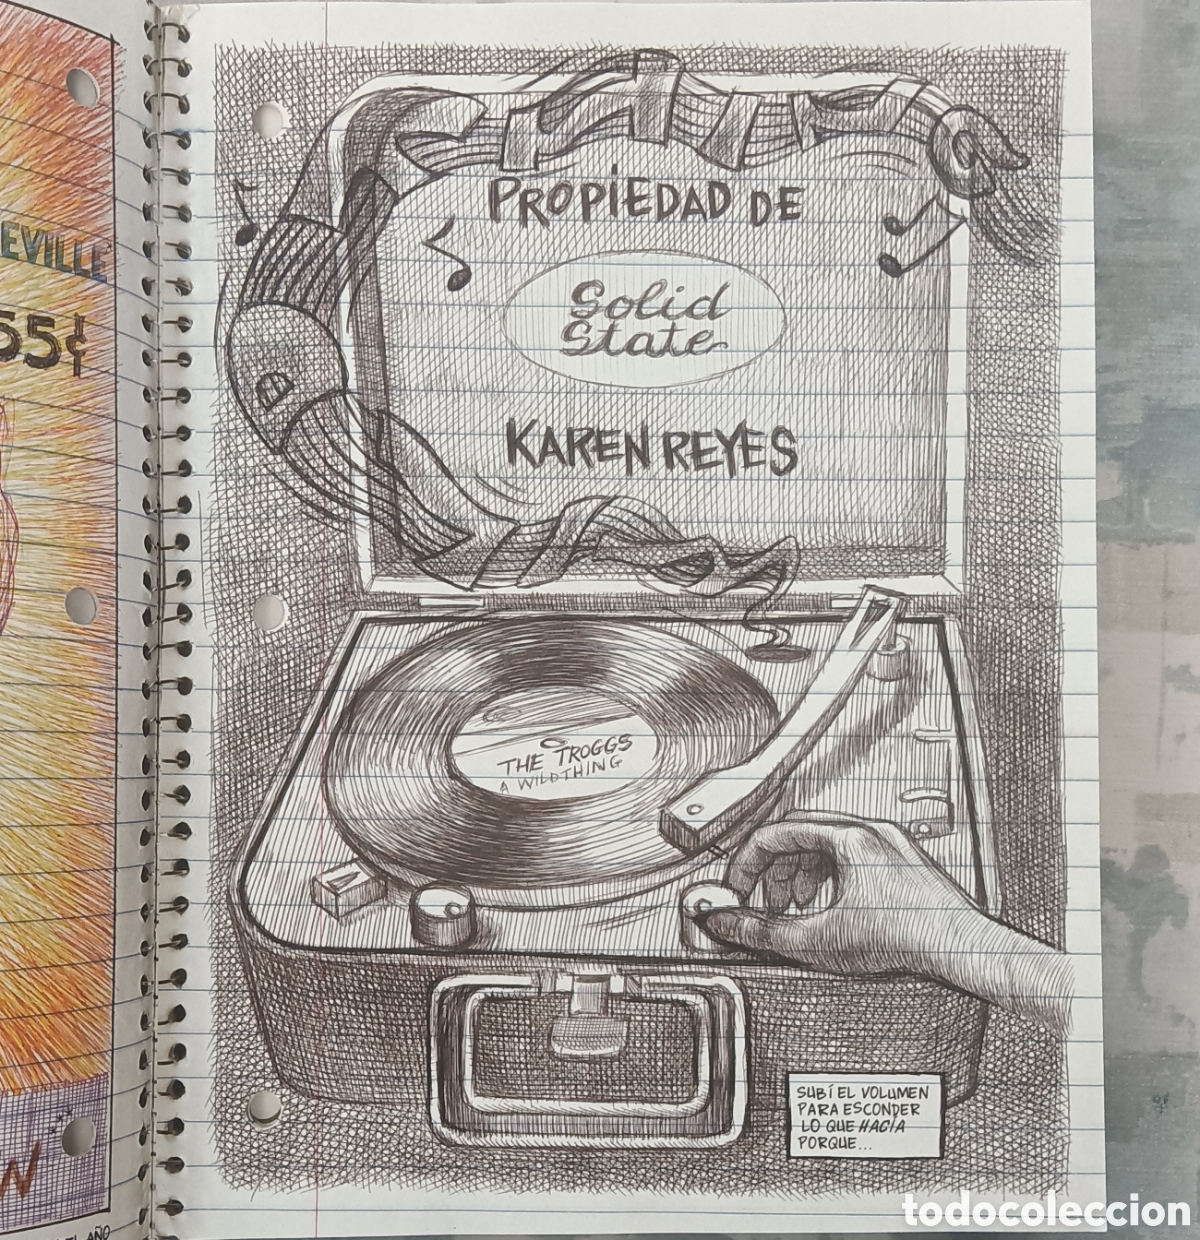 EVILLE
55¢
N
AÑO
PROPIEDAD DE
Solid
State
KAREN REYES
THE TROGGS
A WILD THING
SUBÍ EL VOLUMEN
PARA ESCONDER
LO QUE HACÍA
PORQUE...
todocoleccion